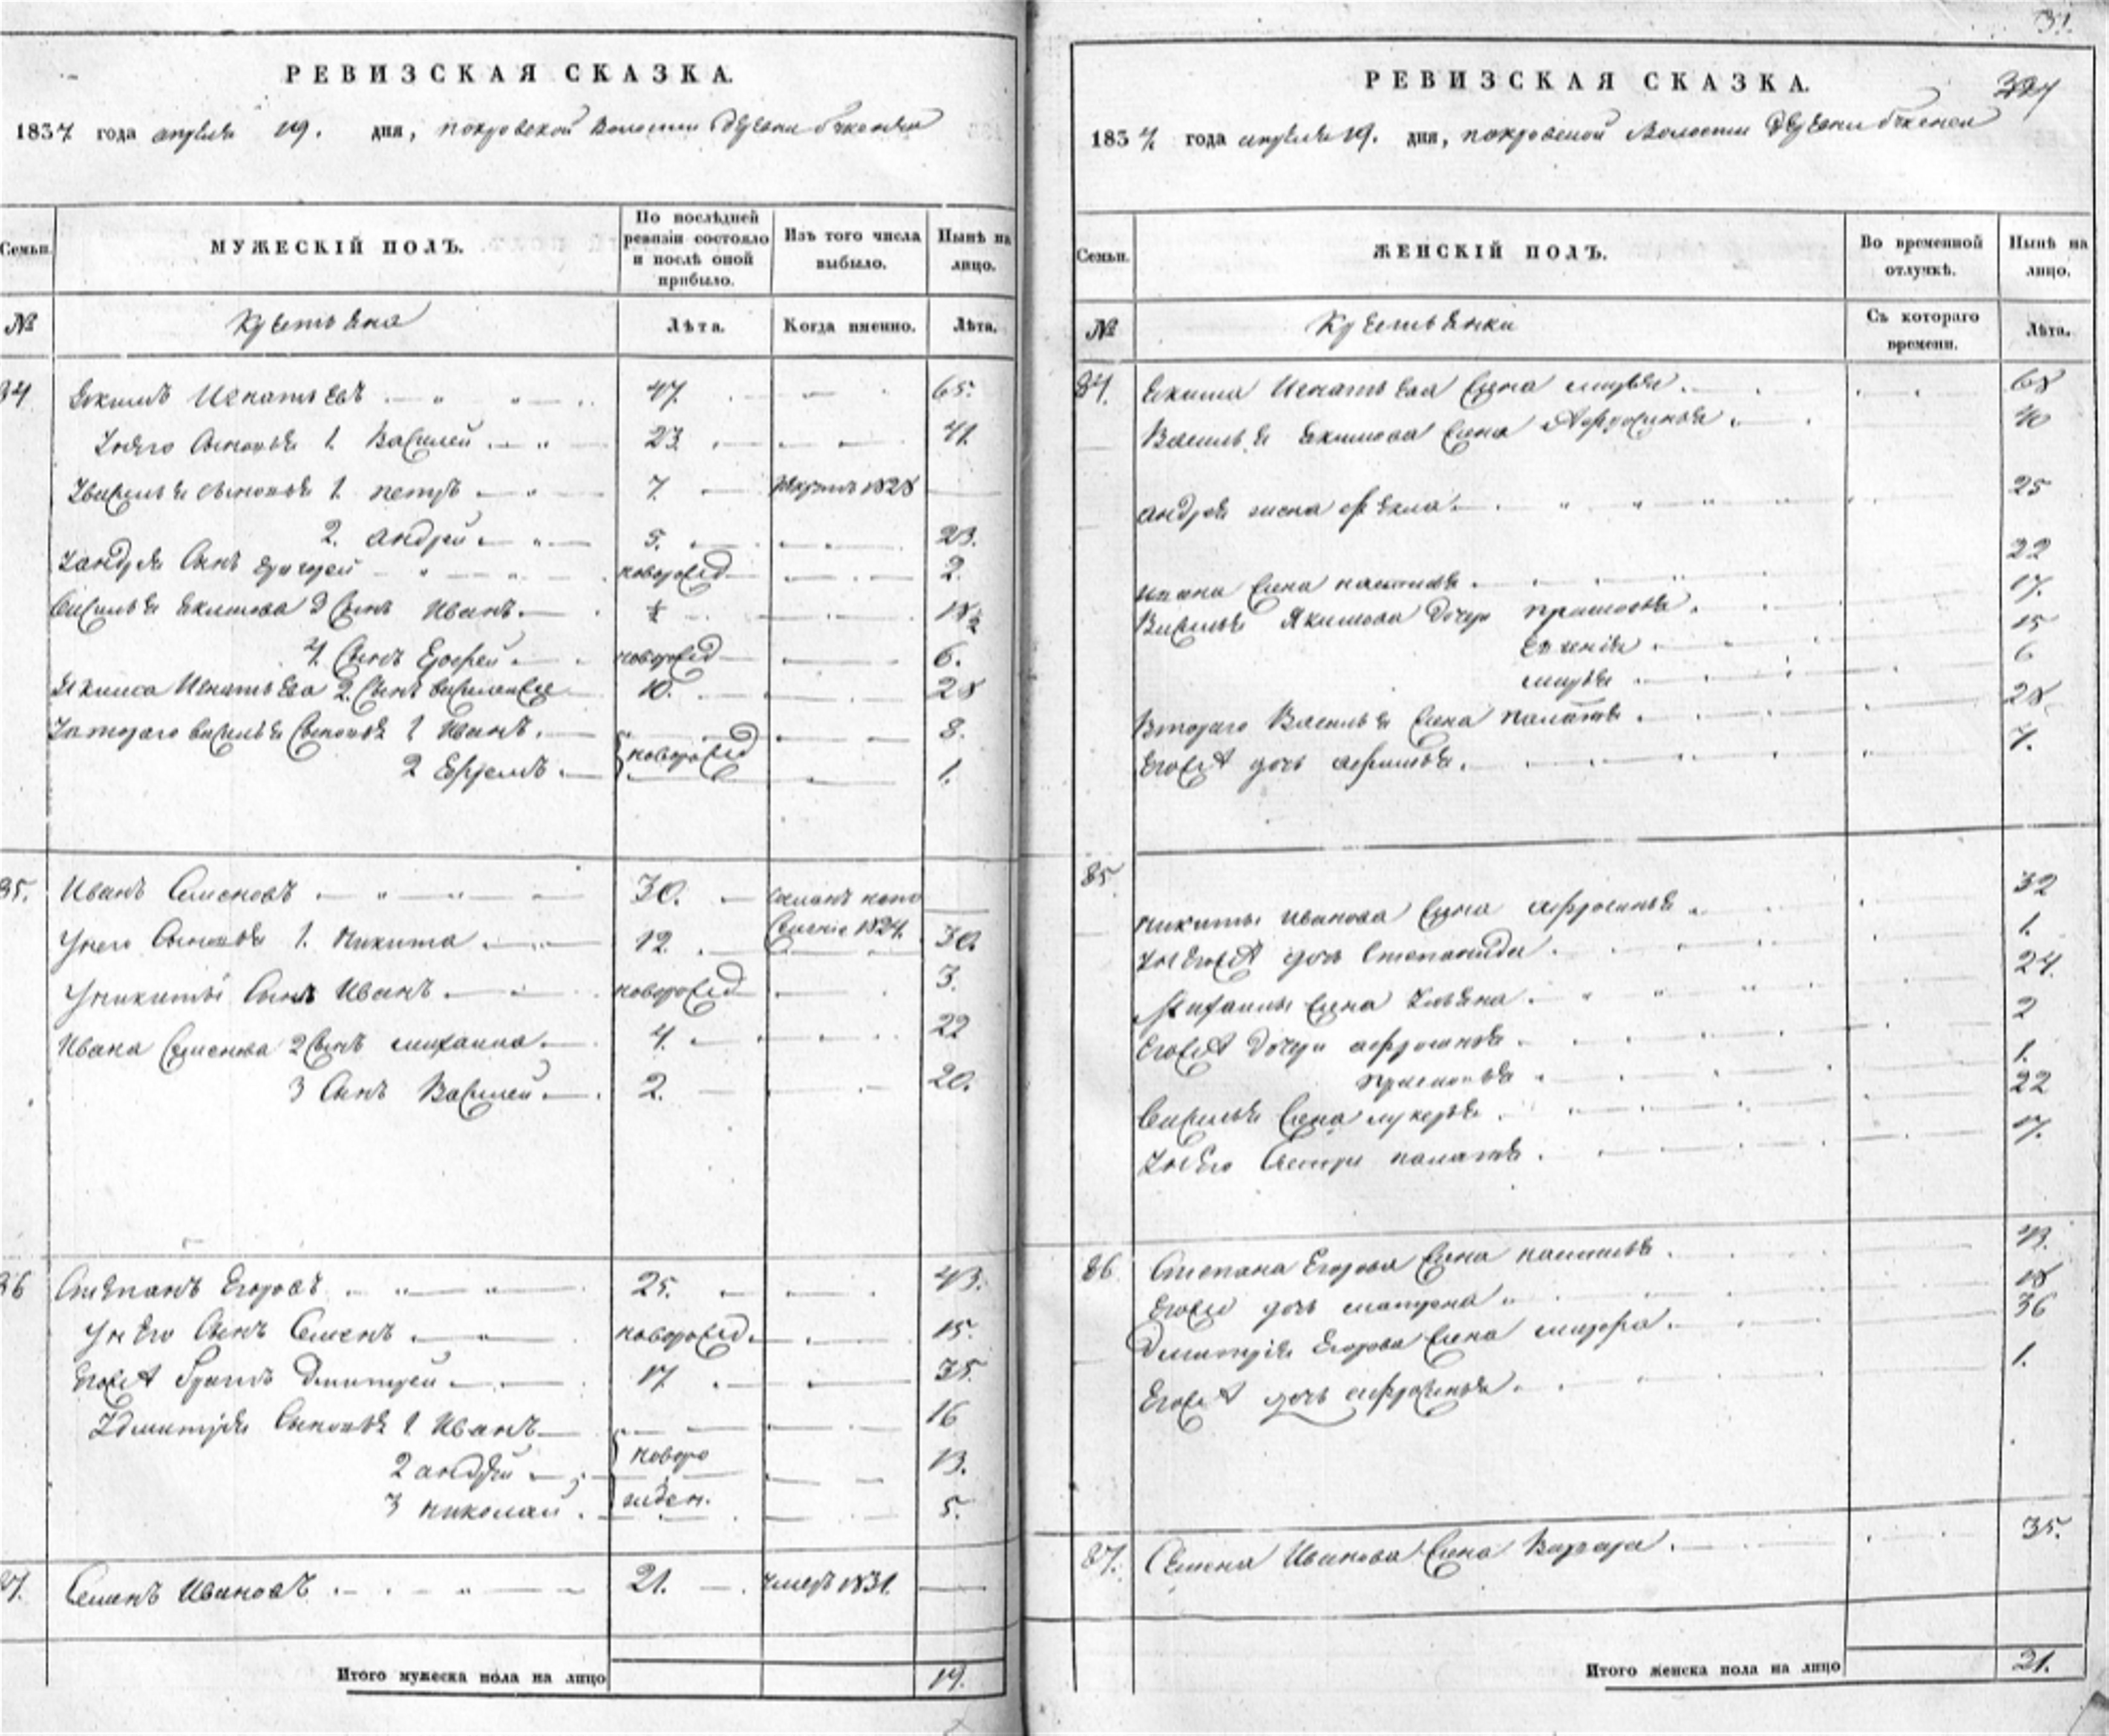 РЕВИЗСКАЯ СКАЗКА.
1834 года апреля 19. дня, покровской волости деревни
Семьи.
МУЖЕСКІЙ ПОЛЪ.
По послѣдней ревизіи состояло и послѣ оной прибыло.
Изъ того числа выбыло.
Нынѣ на лицо.
№
Лѣта.
Когда именно.
Лѣта.
84 Екимъ Игнатьевъ 47 65.
Сыновья 1. Василей 23. 41.
сыновья 1. петръ 7. 1828
2. андрей 5. 23.
сынъ григорей новорожд 2.
Василья екимова 3 сынъ Иванъ ½ 18½
4. сынъ Ерофей новорожд 6.
Якима Игнатьева 2. сынъ василей 10. 28
втораго василья сыновья 1 Иванъ. 8.
2 Ефремъ новорожд 1.
85. Иванъ Семеновъ 30. 1824.
У него сыновья 1. Никита 12. 30.
У никиты сынъ Иванъ новорожд 3.
Ивана Семенова 2 сынъ михаила 4. 22
3 сынъ Василей 2. 20.
86 Степанъ Егоровъ 25. 43.
У него сынъ Семенъ новорожд. 15.
братъ Дмитрей 17. 35.
дмитрія сыновья 1 Иванъ 16
2 андрей новоро 13.
3 николай жден. 5.
87. Семенъ Ивановъ 21. умеръ 1831.
Итого мужеска пола на лицо 19.
31.
327
РЕВИЗСКАЯ СКАЗКА.
1834 года апреля 19. дня, покровской волости деревни
Семьи.
ЖЕНСКІЙ ПОЛЪ.
Во временной отлучкѣ.
Нынѣ на лицо.
№
Съ котораго времени.
Лѣта.
84. Екима Игнатьева жена марья 68
Василья екимова жена Афросинья 40
андрея жена фекла 25
ивана жена наталья 22
Василья Якимова дочери прасковья 17.
15
марья 6
Втораго Василья жена 28
Егожъ дочь 7.
85 никиты иванова жена афросинья 32
дочь Степанида 1.
Михаилы жена Ульяна 24.
Егожъ дочери афросинья 2
прасковья 1.
василья жена лукерья 22
У него сестра 17.
86 Степана Егорова жена 43.
Егожъ дочь матрена 18
Дмитрія Егорова жена 36
Егожъ дочь афросинья 1.
87. Семена Иванова жена Варвара 35.
Итого женска пола на лицо 21.